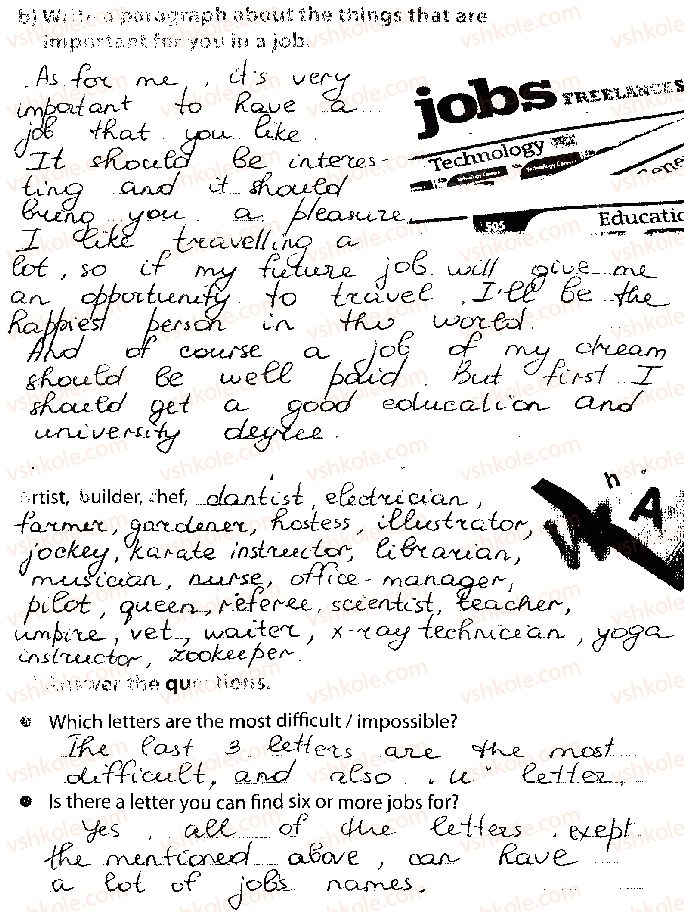 b) Write a paragraph about the things that are
important for you in a job.
As for me, it's very
important to have a
job that you like.
It should be interes-
ting and it should
bring you a pleasure.
I like travelling a
lot, so if my future job will give me
an opportunity to travel, I'll be the
happiest person in the world.
And of course a job of my dream
should be well paid. But first I
should get a good education and
university degree.
jobs FREELANCES
Technology
505 Educatio
Artist, builder, chef, dantist, electrician,
farmer, gardener, hostess, illustrator,
jockey, karate instructor, librarian,
musician, nurse, office-manager,
pilot, queen, referee, scientist, teacher,
umpire, vet, waiter, x-ray technician, yoga
instructor, zookeeper.
h
W A
Answer the questions.
Which letters are the most difficult / impossible?
The last 3 letters are the most
difficult, and also "u" letter.
Is there a letter you can find six or more jobs for?
Yes, all of the letters, exept
the mentioned above, can have
a lot of jobs names.
vshkole.com